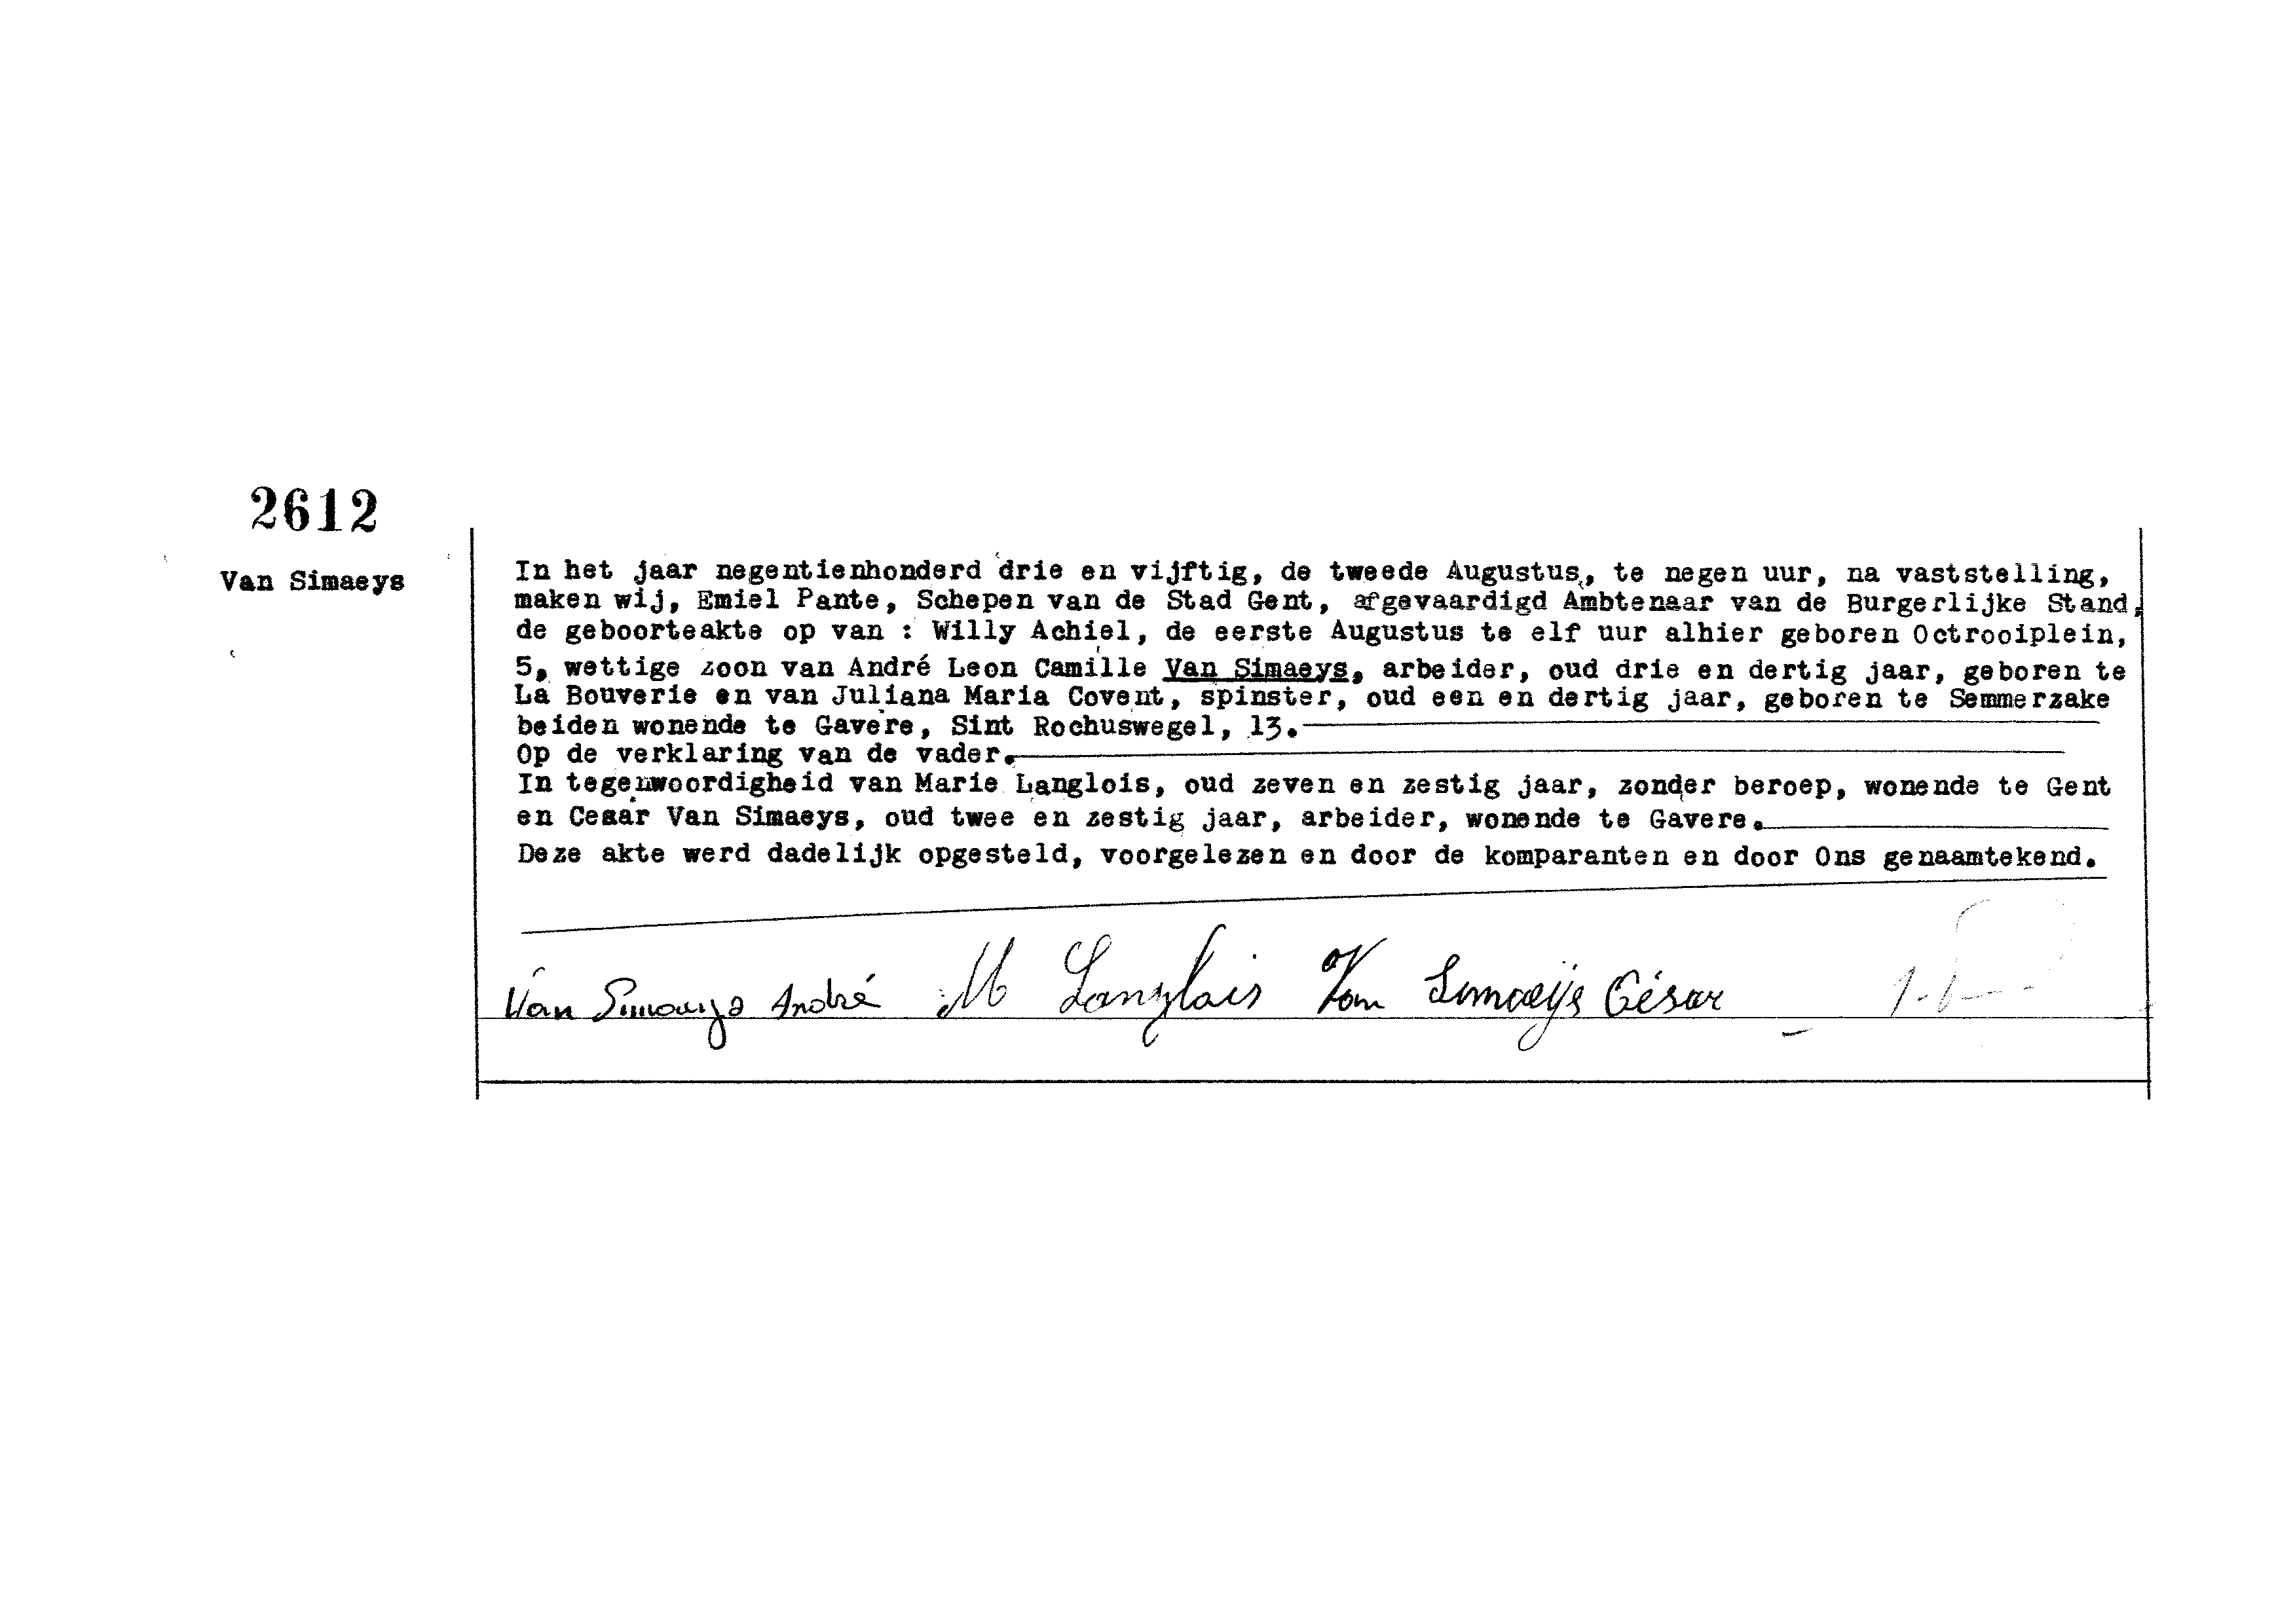 2612
Van Simaeys
In het jaar negentienhonderd drie en vijftig, de tweede Augustus, te negen uur, na vaststelling,
maken wij, Emiel Pante, Schepen van de Stad Gent, afgevaardigd Ambtenaar van de Burgerlijke Stand,
de geboorteakte op van : Willy Achiel, de eerste Augustus te elf uur alhier geboren Octrooiplein,
5, wettige zoon van André Leon Camille Van Simaeys, arbeider, oud drie en dertig jaar, geboren te
La Bouverie en van Juliana Maria Covent, spinster, oud een en dertig jaar, geboren te Semmerzake
beiden wonende te Gavere, Sint Rochuswegel, 13.
Op de verklaring van de vader.
In tegenwoordigheid van Marie Langlois, oud zeven en zestig jaar, zonder beroep, wonende te Gent
en Cesar Van Simaeys, oud twee en zestig jaar, arbeider, wonende te Gavere.
Deze akte werd dadelijk opgesteld, voorgelezen en door de komparanten en door Ons genaamtekend.
Van Simaeys André M Langlois Van Simaeijs César